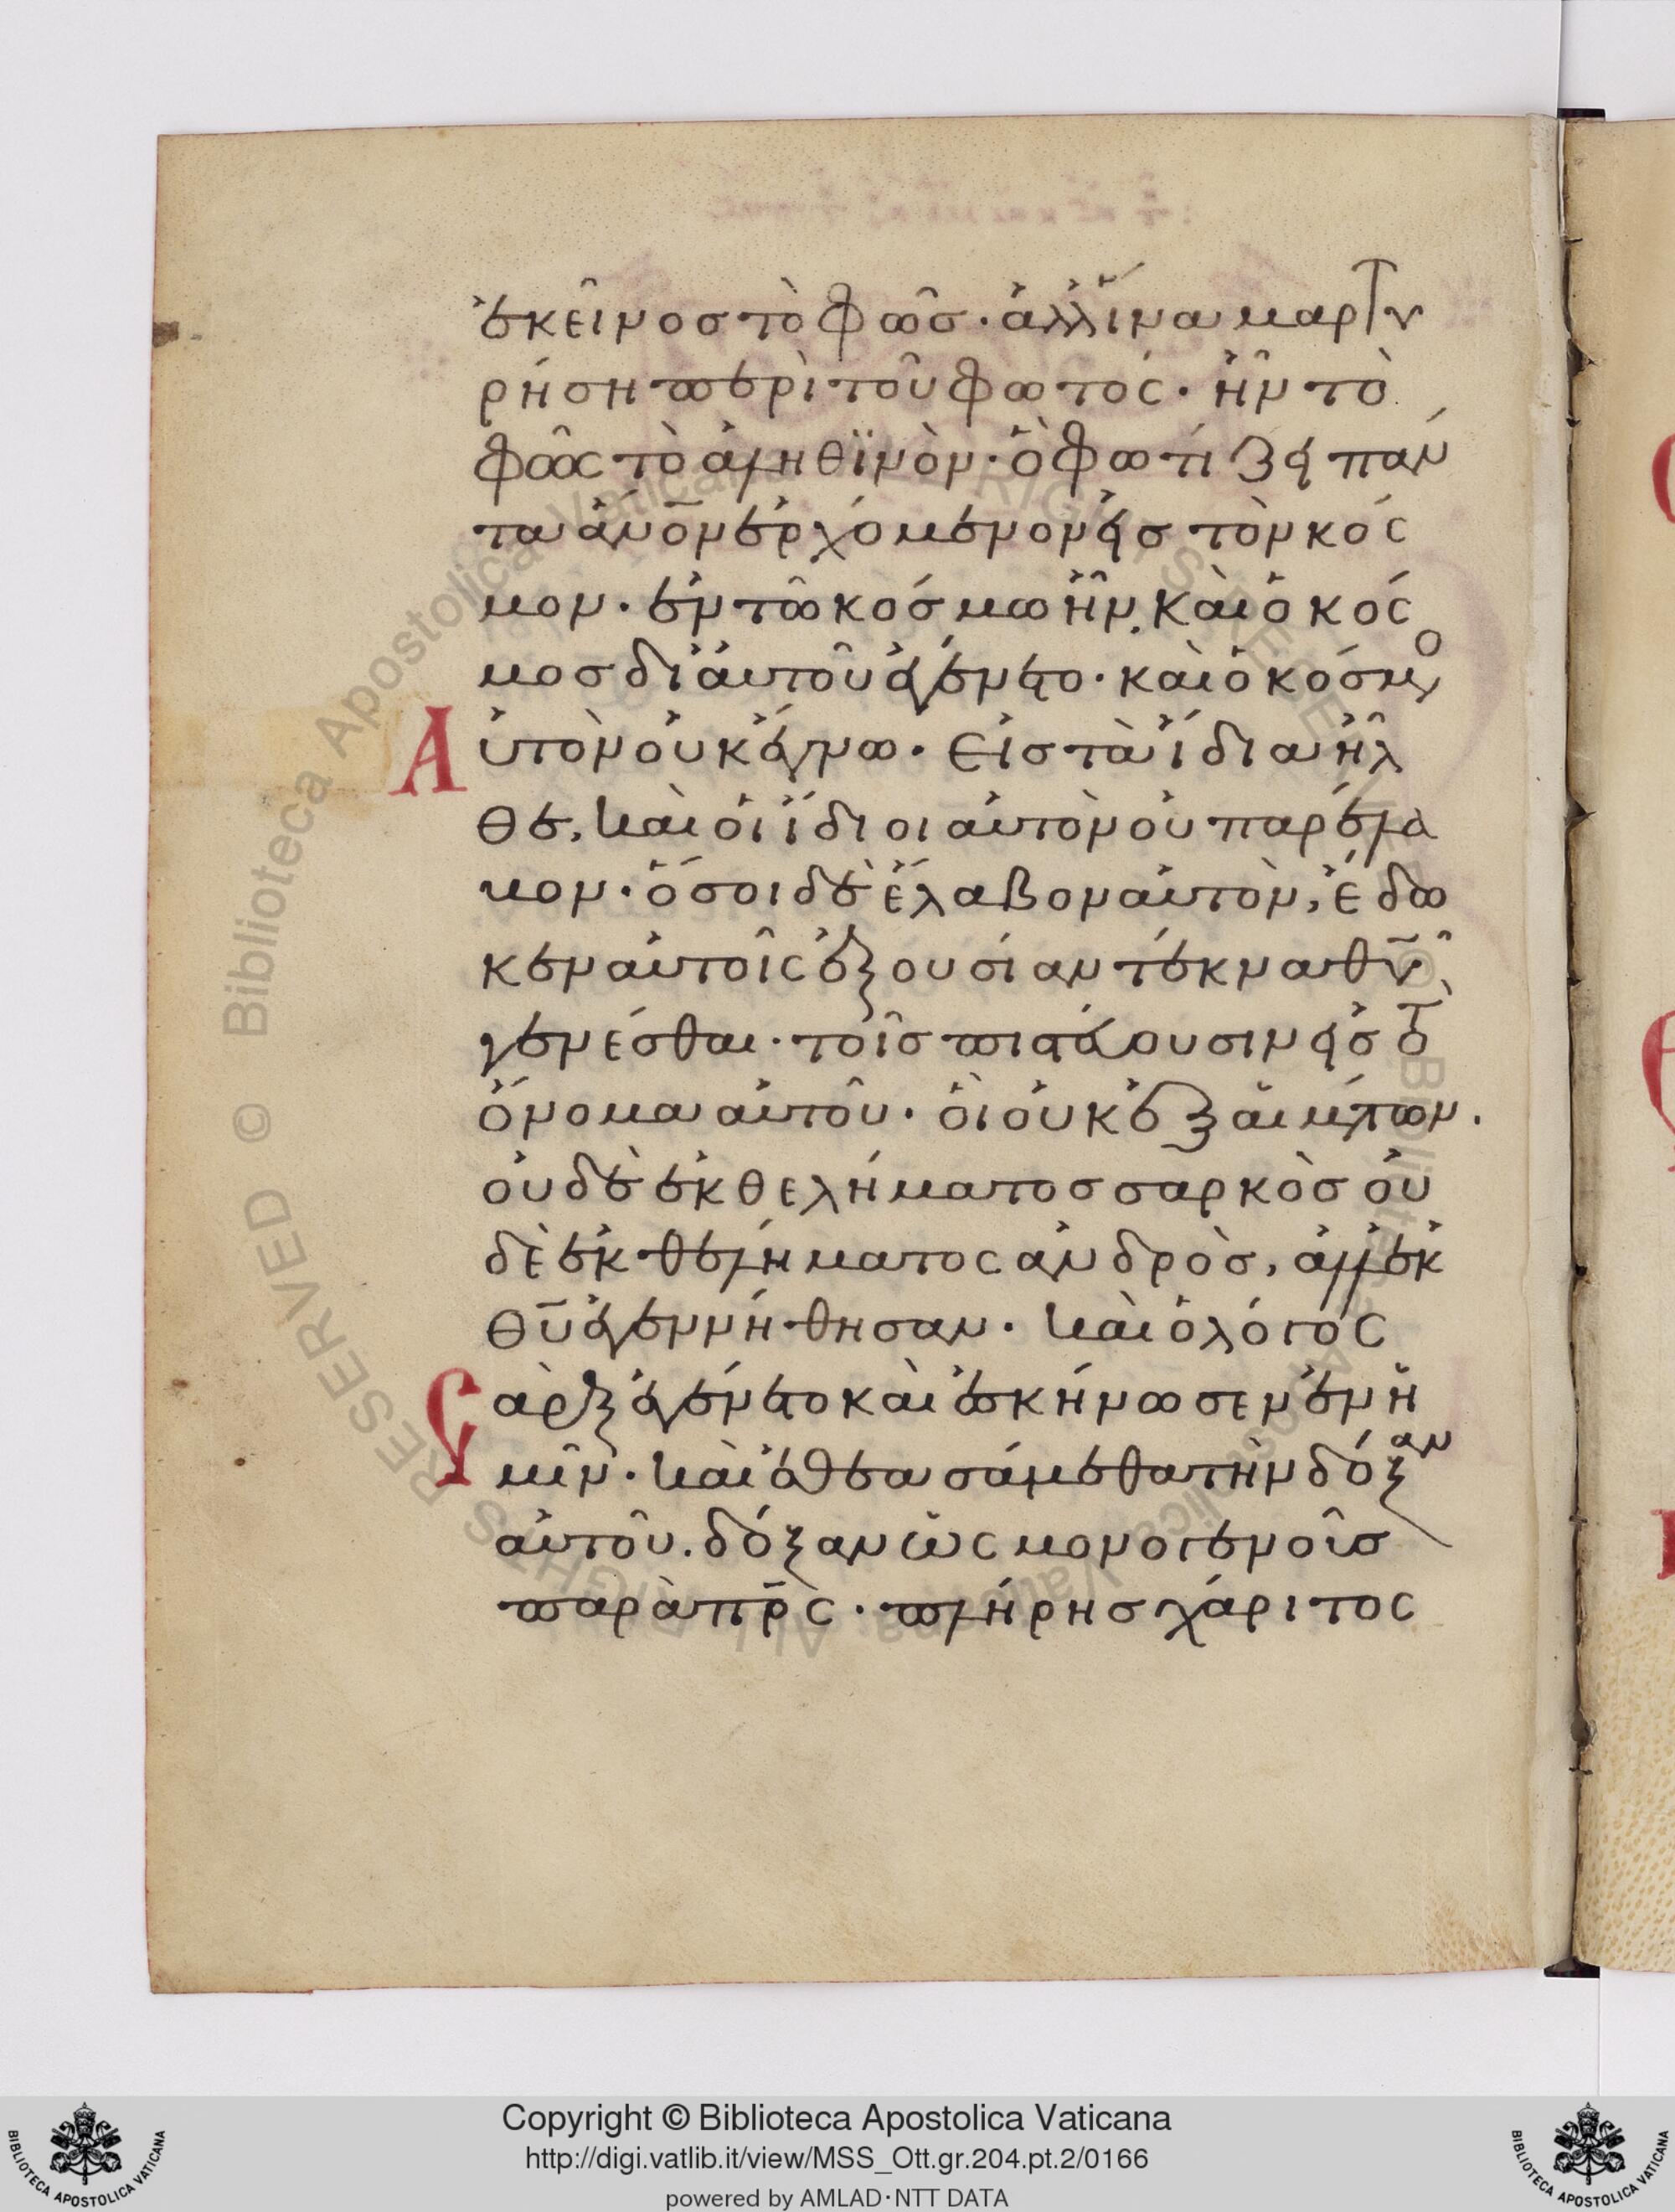 ἐκεῖνοσ τὸ φῶσ· ἀλλ ἵνα μαρτυ
ρήση περὶ τοῦ φωτός· ἦν τὸ
φῶς τὸ ἀληθϊνὸν· ὃ φωτίζει πάν
τα ἄνο̅ν ἐρχόμενον εἰσ τὸν κόσ
μον· ἐν τῶ κόσμω ἦν, καὶ ὁ κόσ
μοσ δι ἀυτοῦ ἐγένετο· καὶ ὁ κόσμο
Αὐτὸν οὐκ ἔγνω· Εἰσ τὰ ἴδια ἦλ
θε, καὶ ὁι ἴδιοι ἀυτὸν οὐ παρέλα
κον· ὅσοι δὲ ἔλαβον ἀυτὸν, ἔδω
κεν ἀυτοῖς ἐξουσίαν τέκνα θυ̅
γενέσθαι· τοῖσ πιστεύουσιν εἰσ τὸ
ὄνομα ἀυτοῦ· ὁὶ οὐκ ἐξ ἁιμάτων.
οὐδὲ ἐκ θελήματοσ σαρκὸσ οὐ
δὲ ἐκ θελήματος ἀνδρὸσ, ἀλλ ἐκ
θυ̅ ἐγεννήθησαν· Καὶ ὁ λόγος
Σαρξ ἐγένετο καὶ ἐσκήνωσεν ἐν ἡ
μῖν· καὶ ἐθεασάμεθα τὴν δόξαν
ἀυτοῦ. δόξαν ὡς μονογενοῦσ
παρὰ πρ̅ς· πλήρησ χάριτος
Copyright © Biblioteca Apostolica Vaticana
http://digi.vatlib.it/view/MSS_Ott.gr.204.pt.2/0166
powered by AMLAD·NTT DATA
BIBLIOTECA APOSTOLICA VATICANA
BIBLIOTECA APOSTOLICA VATICANA